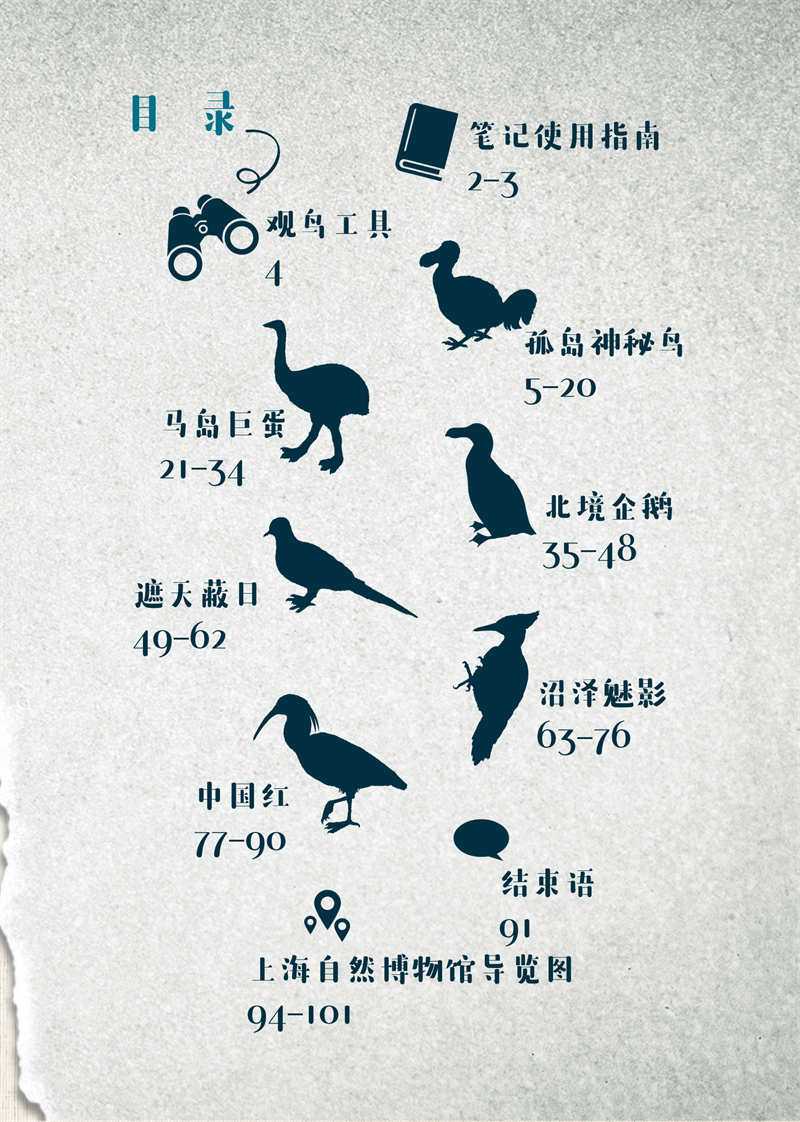 目 录
笔记使用指南
2-3
观鸟工具
4
孤岛神秘鸟
5-20
马岛巨蛋
21-34
北境企鹅
35-48
遮天蔽日
49-62
沼泽魅影
63-76
中国红
77-90
结束语
91
上海自然博物馆导览图
94-101